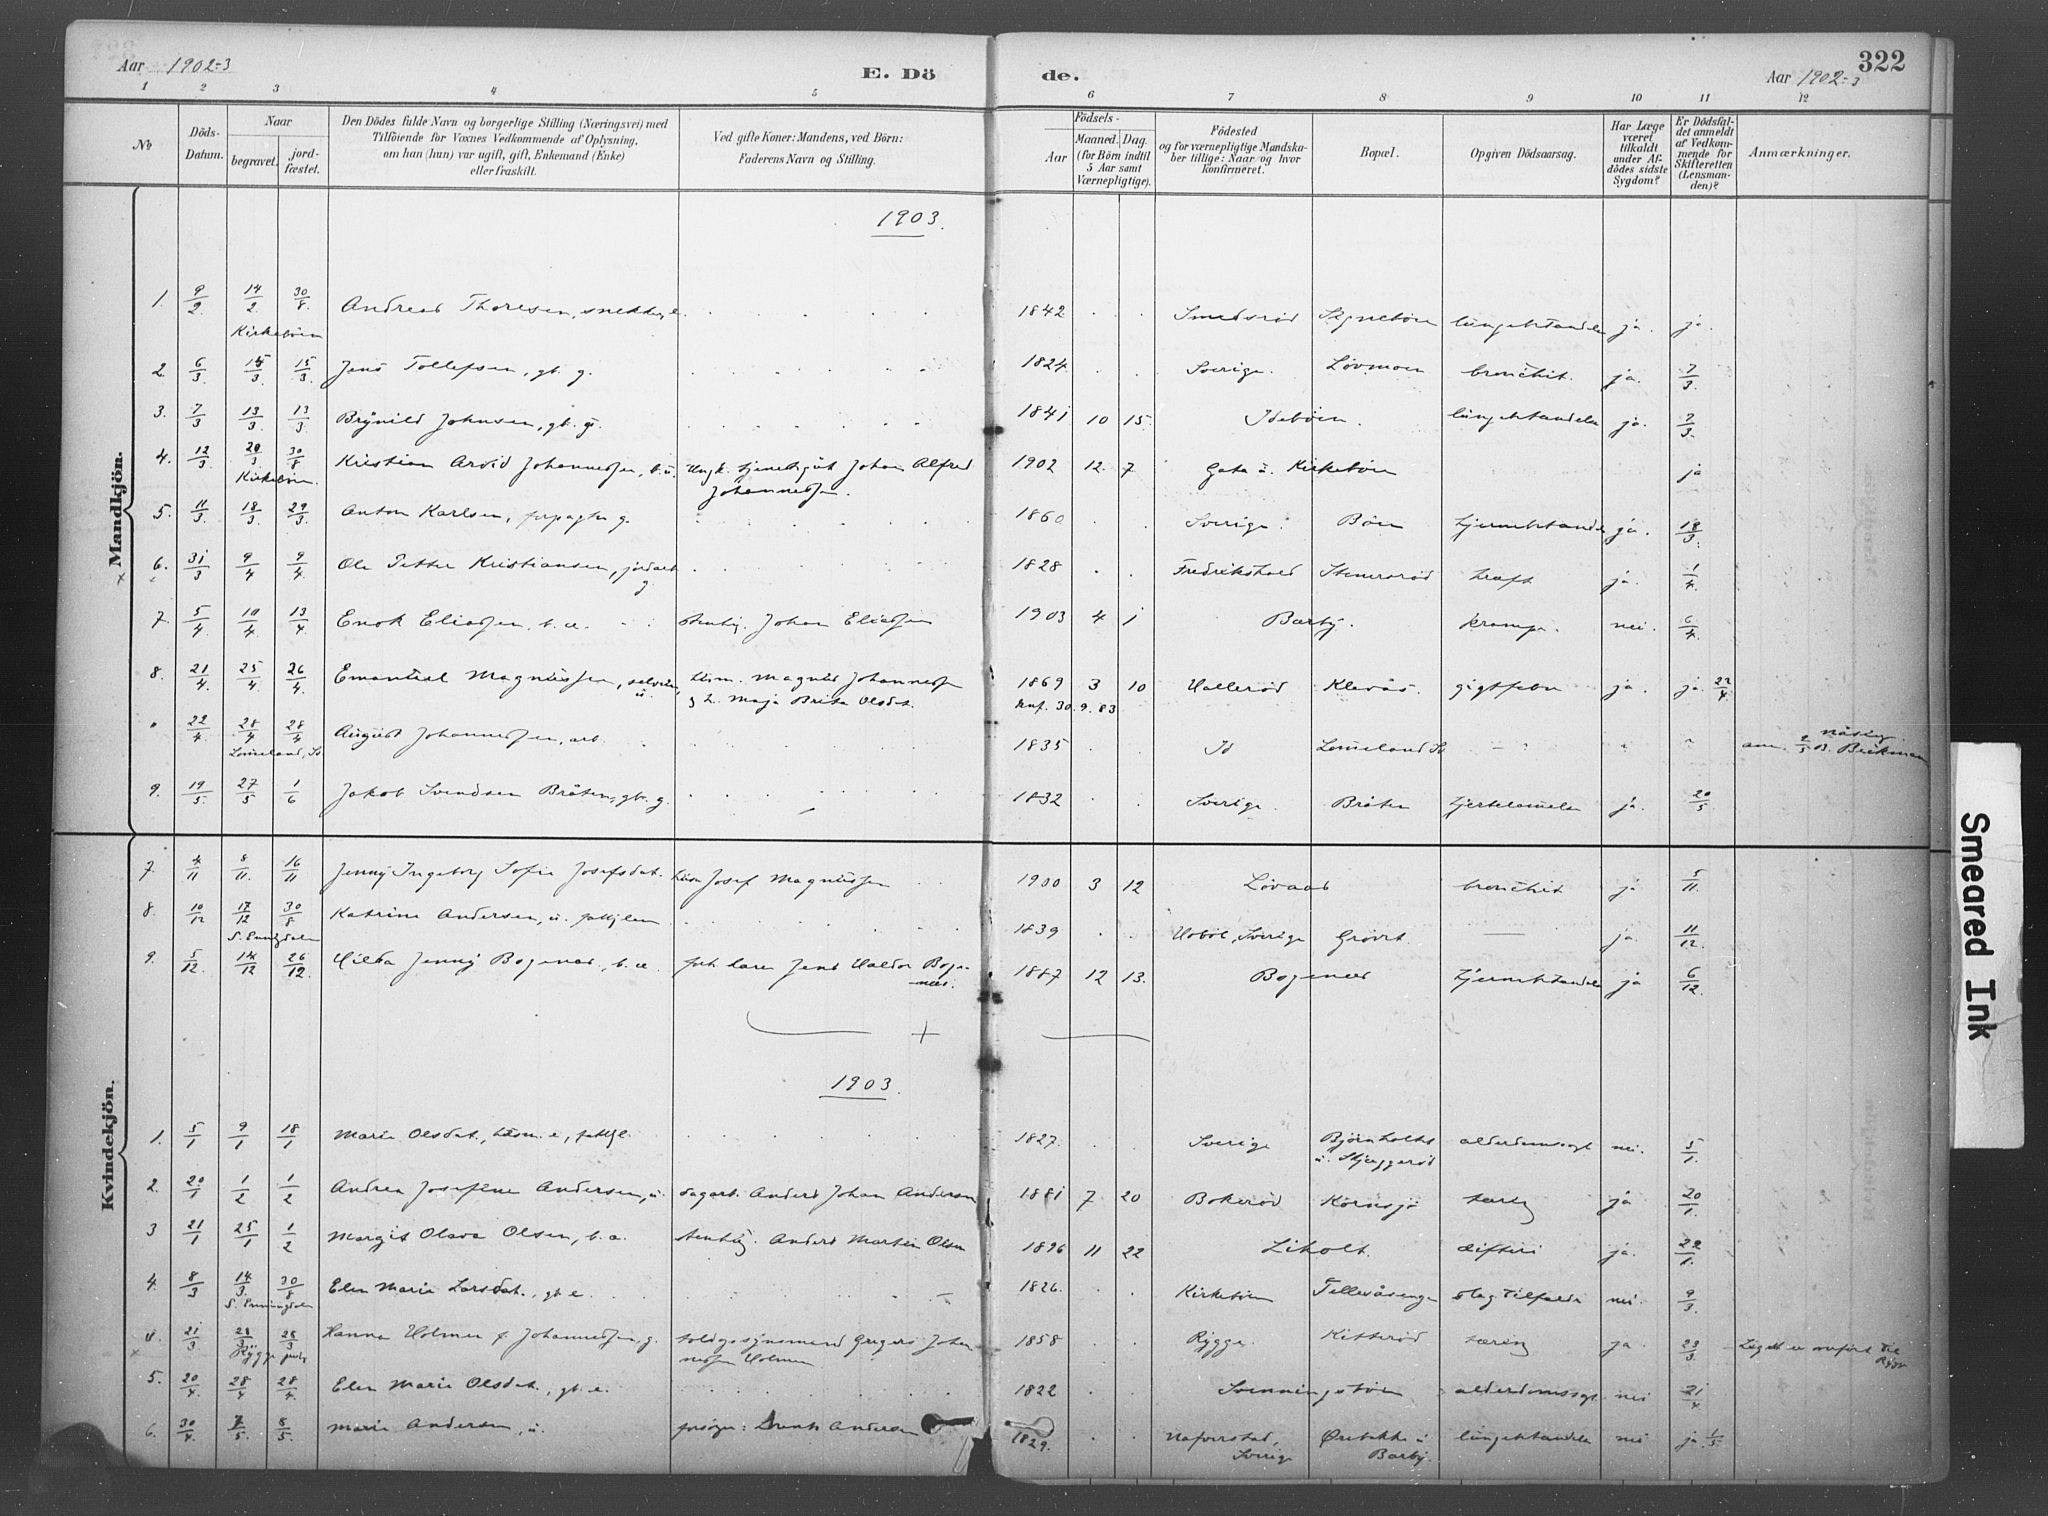 Aar 1902-3
E. Dö
de.
Aar 1902-3
322
1 2 3 4 5 6 7 8 9 10 11 12
No
Döds-
Datum.
Naar
begravet.
jord-
fæstet.
Den Dödes fulde Navn og borgerlige Stilling (Næringsvei) med
Tilföiende for Voxnes Vedkommende af Oplysning,
om han (hun) var ugift, gift, Enkemand (Enke)
eller fraskilt.
Ved gifte Koner: Mandens, ved Börn:
Faderens Navn og Stilling.
Födsels-
Aar
Maaned. Dag.
(for Börn indtil
5 Aar samt
Værnepligtige).
Födested
og for værnepligtige Mandska-
ber tillige: Naar og hvor
konfirmeret.
Bopæl.
Opgiven Dödsaarsag.
Har Læge
været
tilkaldt
under Af-
dödes sidste
Sygdom?
Er Dödsfal-
det anmeldt
af Vedkom-
mende for
Skifteretten
(Lensman-
den)?
Anmærkninger.
Mandkjön.
1903.
1. 9/2 14/2 30/8 Andreas Thoresen, snekker, e. 1842 Smedsrød lungebetændelse ja. ja.
Kirkebøen
2. 6/3 15/3 15/3 Jens Tollefsen, gb. g. 1824 Sverige. Løvmoen bronchit. ja. 7/3
3. 7/3 13/3 13/3 Brynild Johnsen, gb. g. 1841 10 15. Idebøen. lungebetændelse ja. 7/3
4. 12/3 20/3 30/8 Kristian Arvid Johannessen, b. u. ungk. tjenestegut Johan Alfred 1902 12 7 Gata u. Kirkebøen ja
Kirkebøen Johannessen.
5. 11/3 18/3 29/3 Anton Karlsen, forpagter g. 1860 Sverige. Bøen hjernebetændelse ja. 18/3
6. 31/3 9/4 9/4 Ole Petter Kristiansen, jordarb. 1828 Fredrikshald Stenersrød kræft ja. 1/4
g
7. 5/4 10/4 13/4 Enok Eliassen, b. æ. stenhg. Johan Eliassen 1903 4 1 Barby. krampe. nei. 6/4
8. 21/4 25/4 26/4 Emanuel Magnussen, u. husm. Magnus Johannessen 1869 3 10 Hallerød Klevås. gigtfeber ja. ja 22/4
g h. Maja Brita Olsdat. konf. 30. 9. 83
" 22/4 28/4 28/4 August Johannessen, arb. 1835 Id " "
9. 19/5 27/5 1/6 Jakob Svendsen Bråten, gbr. g. 1832 Sverige. Bråten hjertelamelse ja. 20/5
Kvindekjön.
7. 4/11 8/11 16/11 Jenny Ingeborg Sofie Josefsdat. husm Josef Magnussen 1900 3 12 Løvaas bronchit ja 5/11.
8. 10/12 17/12 30/8 Katrine Andersen, u. fattiglem 1839 Sverige ja. 11/12.
S. Enningdalen
9. 5/12. 14/12 26/12 Hilda Jenny Bogenæs, b. æ. Jens Haldor Boge- 1887 12 13. Bogenæs hjernebetændelse ja 6/12
næs.
1903.
1. 5/1 9/1 18/1 Marie Olsdat., husm. e., fattigl. 1827. Sverige Bjørnholts alderdomssvgt nei. 5/1.
u. Skjæggerød
2. 20/1 1/2 1/2 Andrea Josefine Andersen, u. dagarb. Anders Johan Andersen 1881 7 20 Bokerød Kornsjø tæring ja 20/1.
3 21/1 25/1 1/2 Margit Olava Olsen, b. æ. stenhug. Anders Martin Olsen 1896 11 22 Liholt. difteri ja. 22/1.
4. 8/3 14/3. 30/8 Elen Marie Larsdat., gb e. 1826. Kirkebøen slagtilfælde nei. 9/3.
S. Enningdalen
21/3 28/3 28/3 Hanna Holmer f. Johannessen, g. Johan- 1858 Rygge. Kitterød tæring ja. 23/3 Liget er overført til
Rygge nessen Holmer Rygge
5. 20/4 28/4 28/4. Elen Marie Olsdat., gb. e. 1822 Svenningsbøen alderdomssvgt nei 21/4
6. 30/4 7/5. 8/5. Marie Andersen, u. Andersen 1829. Naverstad, lungebetændelse nei ja. 1/5
Sverige Barby.
Smeared Ink